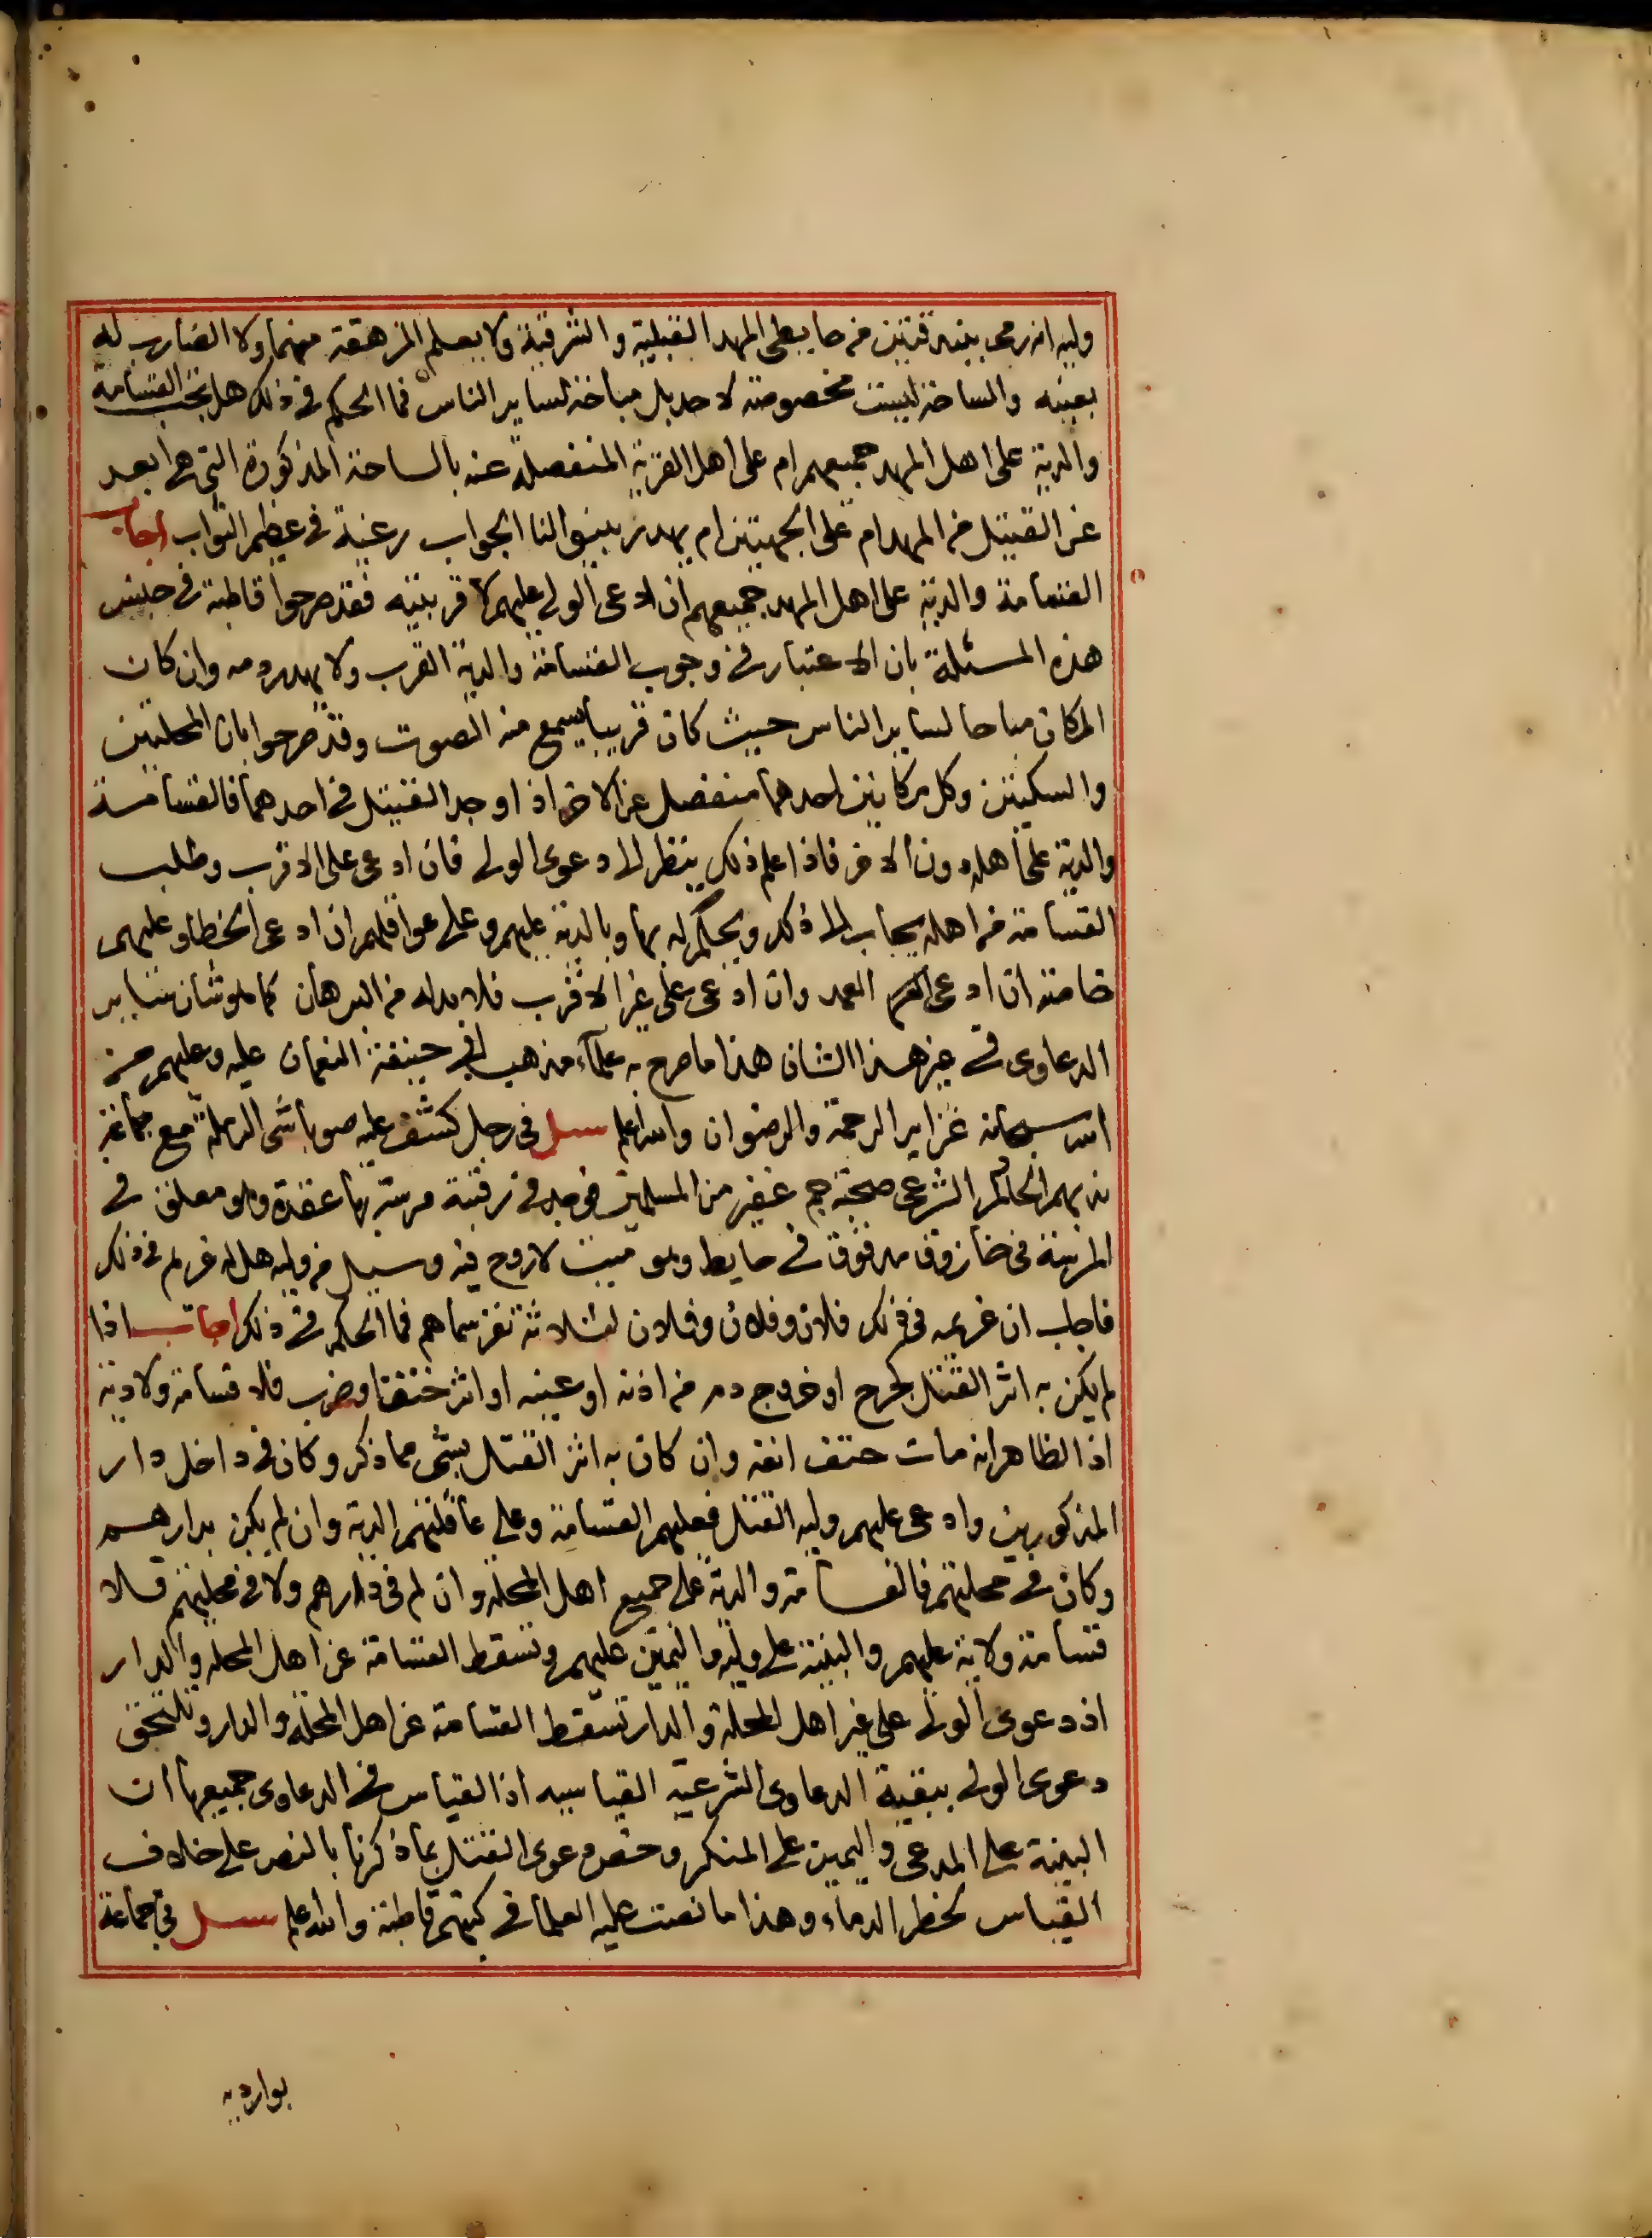 وليه انه رمى ببندقتين من حايطى المهد القبلية والشرقية ولا يعلم المزهقة منهما ولا الضارب له
بعينه والساحة ليست مخصوصة لاحد بل مباحة لساير الناس فما الحكم في ذلك هل تجب القسامة
والدية على اهل المهد جميعهم ام على اهل القرية المنفصلة عنه بالساحة المذكورة التي هي ابعد
عن القتيل من المهد ام على الجهتين ام يهدر بينوا لنا الجواب رغبة في عظيم الثواب اجاب
القسامة والدية على اهل المهد جميعهم ان ادعى الولي عليهم لا قربيته فقد صرحوا قاطبة في جنس
هذه المسئلة بان الاعتبار في وجوب القسامة والدية القرب ولا يهدر دمه وان كان
المكان مباحا لساير الناس حيث كان قريبا يسمع منه الصوت وقد صرحوا بان المحلتين
والسكتين وكل مكانين احدهما منفصل عن الاخر اذا وجد القتيل في احدهما فالقسامة
والدية على اهله دون الاخر فاذا علم ذلك ينظر الى دعوى الولي فان ادعى على الاقرب وطلب
القسامة من اهله يجاب الى ذلك ويحكم له بها وبالدية عليهم وعلى عواقلهم ان ادعى الخطا وعليهم
خاصة ان ادعى العمد وان ادعى على غير الاقرب فلا بد له من البرهان كما هو شان ساير
الدعاوى في غير هذا الشان هذا ما صرح به علماء مذهب ابي حنيفة النعمان عليه وعليهم من
الله سبحانه غزاير الرحمة والرضوان والله اعلم سيل في رجل كشف عليه صوباشى الرملة مع جماعة
ندبهم الحاكم الشرعي صحبة جم غفير من المسلمين فوجد في رقبته مرسة بها عقدة وهو معلق في
المرسة في خازوق مدقوق في حايط وهو ميت لا روح فيه وسيل من وليه هل له غريم في ذلك
فاجاب ان غريمه في ذلك فلان وفلان وفلان لثلاثة نفر سماهم فما الحكم في ذلك اجاب اذا
لم يكن به اثر القتل كجرح او خروج دم من اذنه او عينه او اثر خنق او ضرب فلا قسامة ولا دية
اذ الظاهر انه مات حتف انفه وان كان به اثر القتل بشى مما ذكر وكان في داخل دار
المذكورين وادعى عليهم وليه القتل فعليهم القسامة وعلى عاقلتهم الدية وان لم يكن بدارهم
وكان في محلتهم فالقسامة والدية على جميع اهل المحلة وان لم في دارهم ولا في محلتهم فلا
قسامة ولا دية عليهم والبينة على وليه واليمين عليهم وتسقط القسامة عن اهل المحله والدار
اذ دعوى الولي على غير اهل المحلة والدار تسقط القسامة عن اهل المحلة والدار وتلتحق
دعوى الولي ببقية الدعاوى الشرعية القياسيه اذ القياس في الدعاوى جميعها ان
البينة على المدعى واليمين على المنكر وخص دعوى القتل بما ذكرنا بالنص على خلاف
القياس لخطر الدماء وهذا ما نصت عليه العلما في كتبهم قاطبة والله اعلم سيل في جماعة
بوارديه